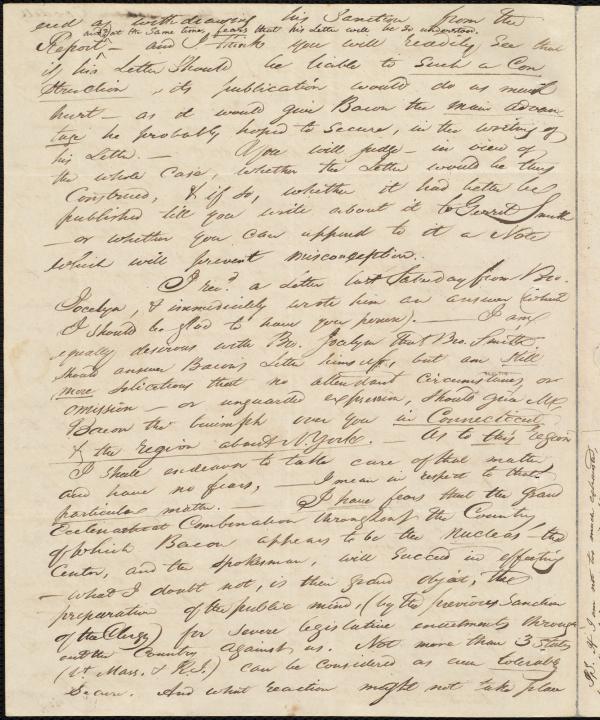 end as withdrawing his Sanction from the
and at the Same time, fears that his Letter will be so understood.
Report - and I think you will readily See that
if his Letter Should be liable to Such a Con
struction, its publication would do as much
hurt - as it would give Bacon the main advan-
tage he probably hoped to Secure, in the writing of
his Letter. - You will judge - in view of
the whole Case, whether the Letter would be thus
Construed, & if So, whether it had better be
published till you write about it to Gerrit Smith
- or whether you can append to it a Note
which will prevent misconception.
I recd. a Letter last Saturday from Bro.
Jocelyn, & immediately wrote him an answer (which
I Should be glad to have you peruse). - I am
equally desirous with Bro. Jocelyn that Bro. Smith
should answer Bacon's Letter himself, but am Still
more Solicitous that no attendant circumstances, or
omission - or unguarded expression, should give Mr.
Bacon the triumph over you in Connecticut,
& the region about N York. - As to this region
I shall endeavor to take care of that matter
and have no fears, - I mean in respect to that
particular matter. - I have fears that the grand
Ecclesiastical Combination throughout the Country,
of which Bacon appears to be the nucleus - the
Center, and the Spokesman, will Succeed in effecting
- what I doubt not, is their grand object, the
preparation of the public mind, (by the previous Sanction
of the Clergy) for Severe legislative enactments through
out the Country against us. Not more than 3 States
(Vt. Mass. & R.I.) can be considered as even tolerably
Secure. And what reaction might not take place
P.S. If I am not too much exhausted,